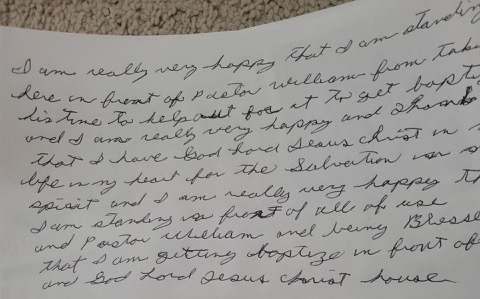 I am really very happy that I am standing
here in front of Pastor William from taki
his time to help out for it to get bapti
and I am really very happy and
that I have God Lord Jesus Christ in
life in my heart for the Salvation
spirit and I am really very happy th
I am standing in front of all of use
and Pastor William and being Blesse
that I am getting baptize in front of
and God Lord Jesus Christ house